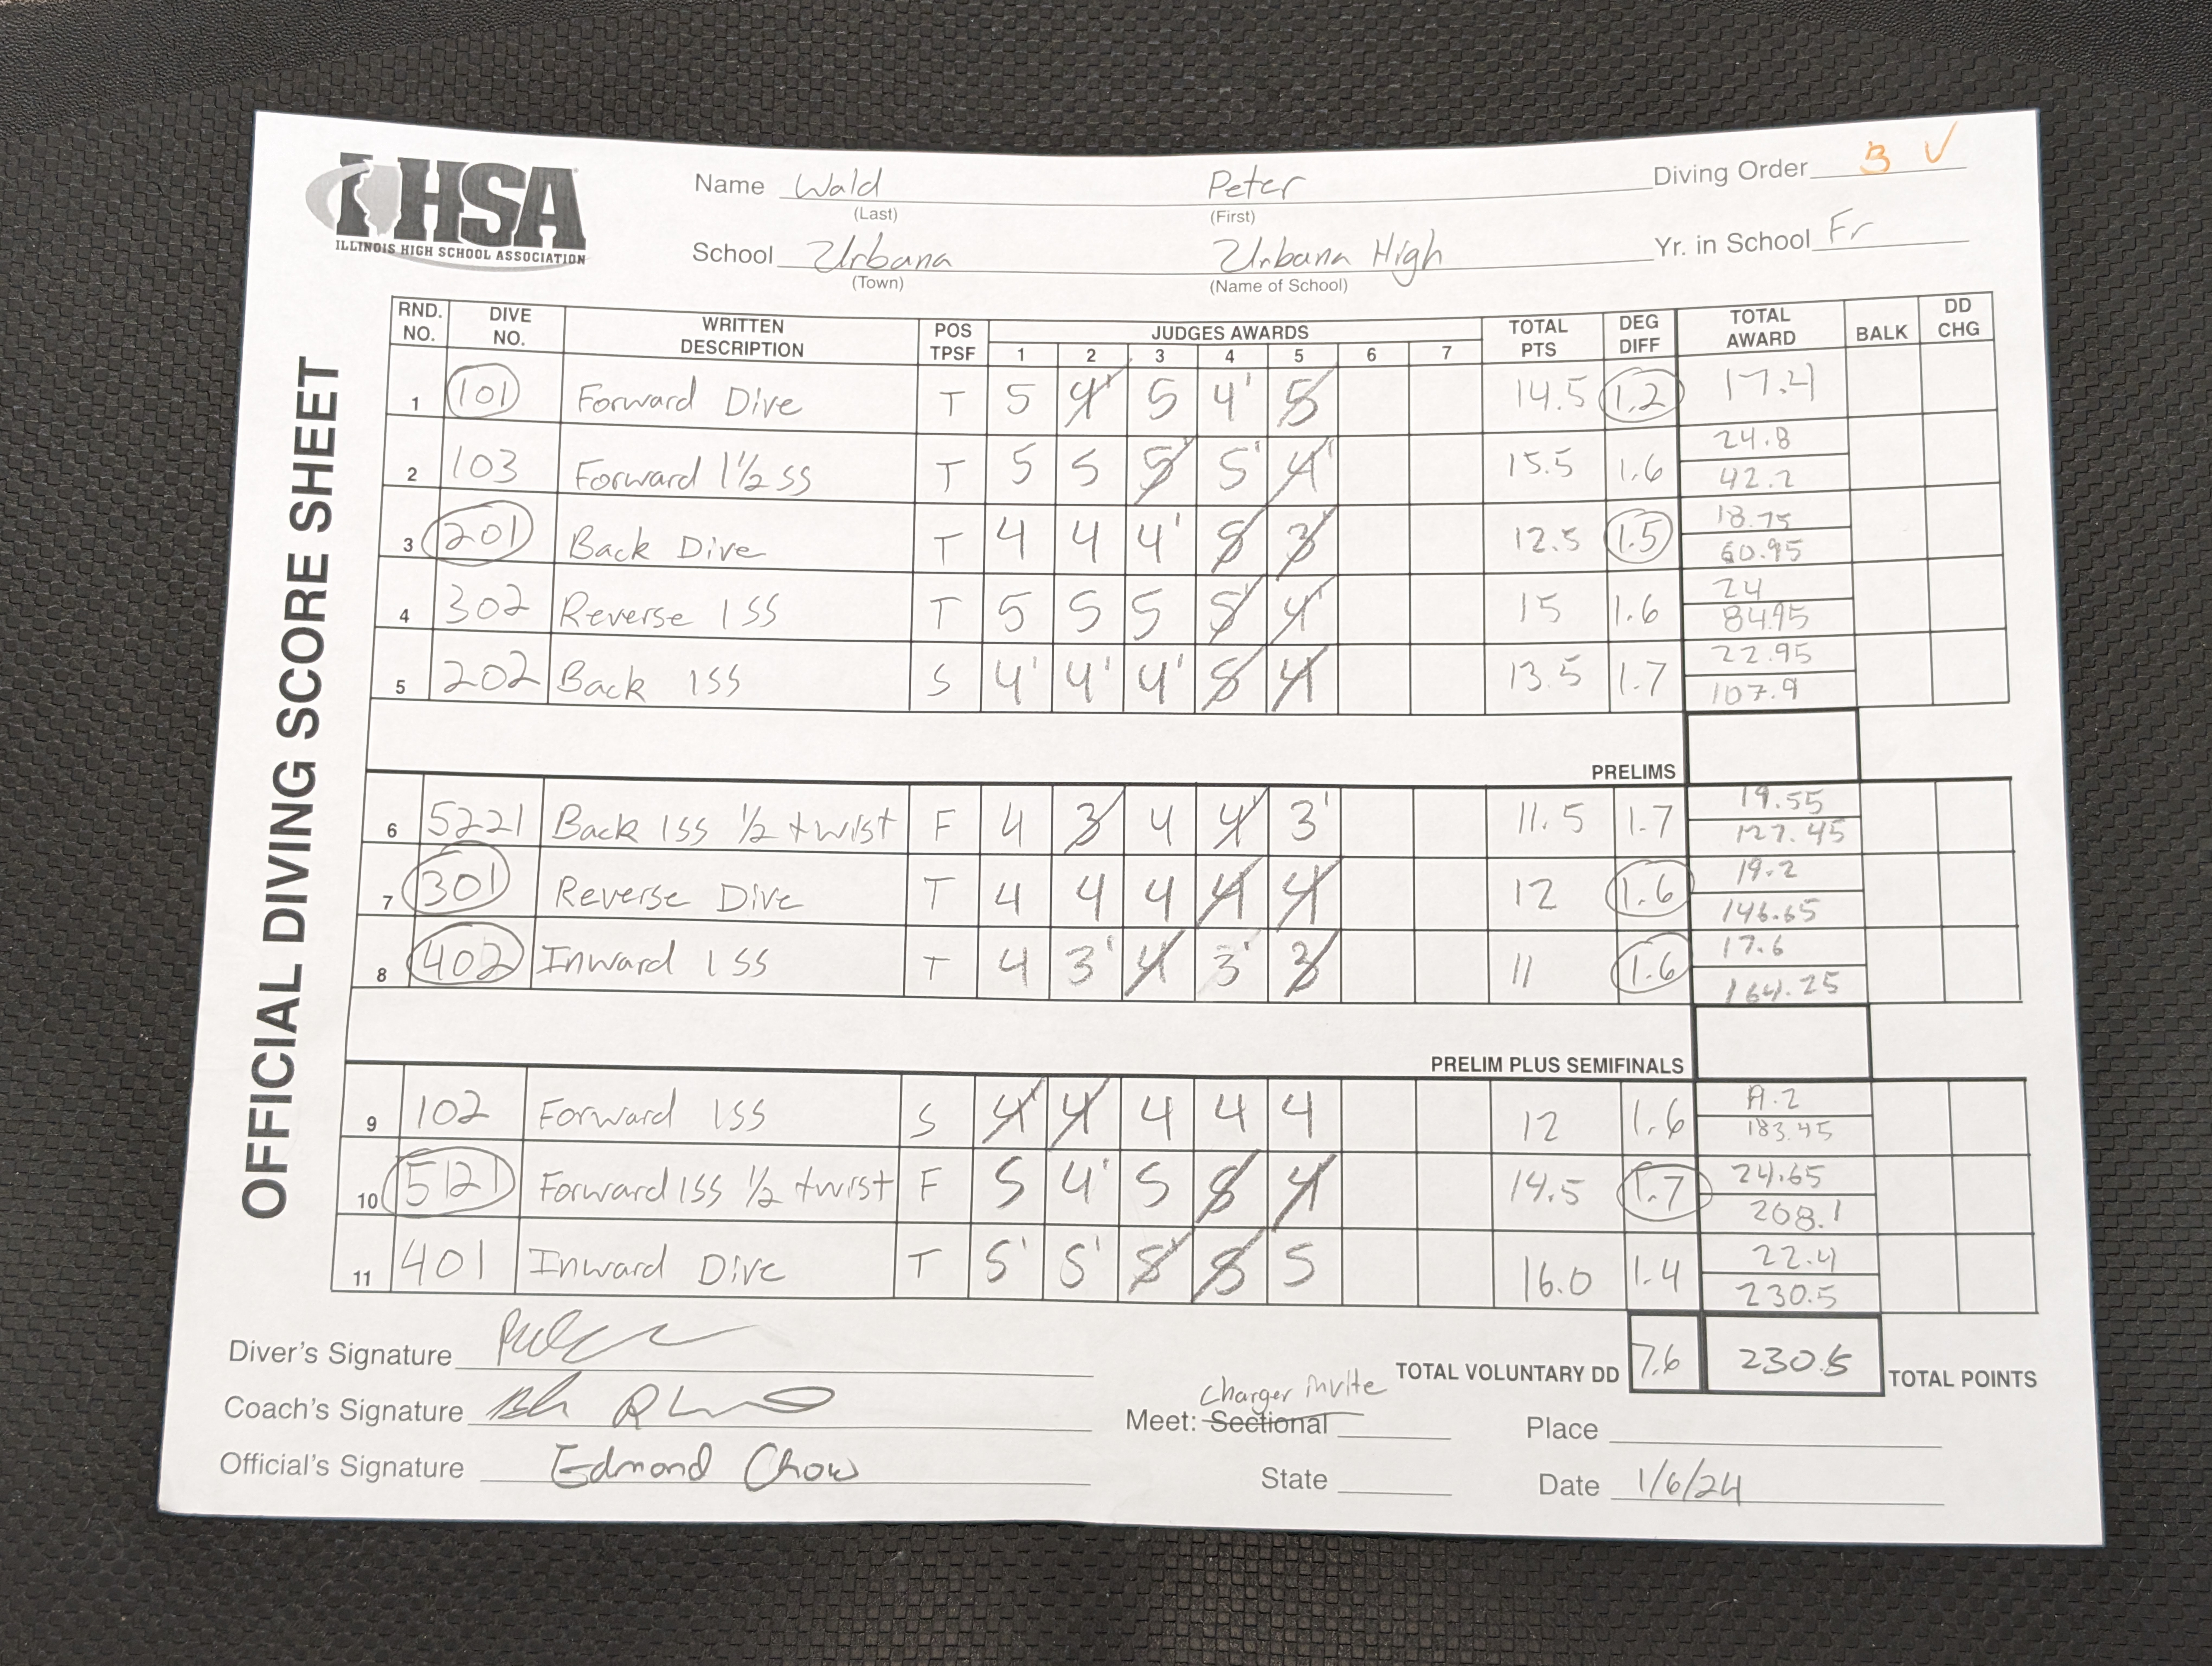 IHSA
ILLINOIS HIGH SCHOOL ASSOCIATION
OFFICIAL DIVING SCORE SHEET
Name Wald Peter Diving Order 3 V
(Last) (First)
School Urbana Urbana High Yr. in School Fr
(Town) (Name of School)
RND. NO. DIVE NO. WRITTEN DESCRIPTION POS TPSF JUDGES AWARDS TOTAL PTS DEG DIFF TOTAL AWARD BALK DD CHG
1 2 3 4 5 6 7
1 101 Forward Dive T 5 4' 5 4' 5 14.5 1.2 17.4
2 103 Forward 1 1/2 SS T 5 5 5' 5' 4' 15.5 1.6 24.8
42.2
3 201 Back Dive T 4 4 4' 5 3' 12.5 1.5 18.75
60.95
4 302 Reverse 1 SS T 5 5 5 5' 4' 15 1.6 24
84.95
5 202 Back 1SS S 4' 4' 4' 5 4 13.5 1.7 22.95
107.9
PRELIMS
6 5221 Back 1SS 1/2 twist F 4 3 4 4' 3' 11.5 1.7 19.55
127.45
7 301 Reverse Dive T 4 4 4 4 4 12 1.6 19.2
146.65
8 402 Inward 1SS T 4 3' 4 3' 3 11 1.6 17.6
164.25
PRELIM PLUS SEMIFINALS
9 102 Forward 1SS S 4' 4 4 4 4 12 1.6 19.2
183.45
10 5121 Forward 1SS 1/2 twist F 5 4' 5 5 4 14.5 1.7 24.65
208.1
11 401 Inward Dive T 5' 5' 5' 5 5 16.0 1.4 22.4
230.5
TOTAL VOLUNTARY DD 7.6 230.5 TOTAL POINTS
Diver's Signature
Coach's Signature
Charger invite
Meet: Sectional Place
Official's Signature Edmond Chow
State Date 1/6/24